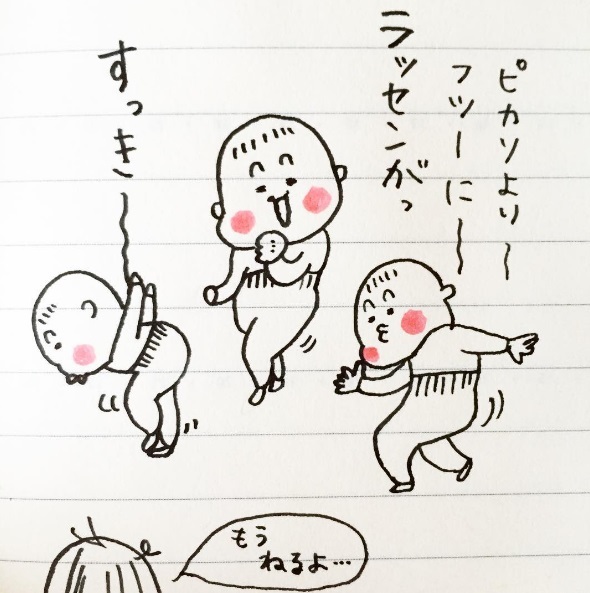 ピカソより〜
フツーに〜
ラッセンがっ
すっき〜
もう
ねるよ…